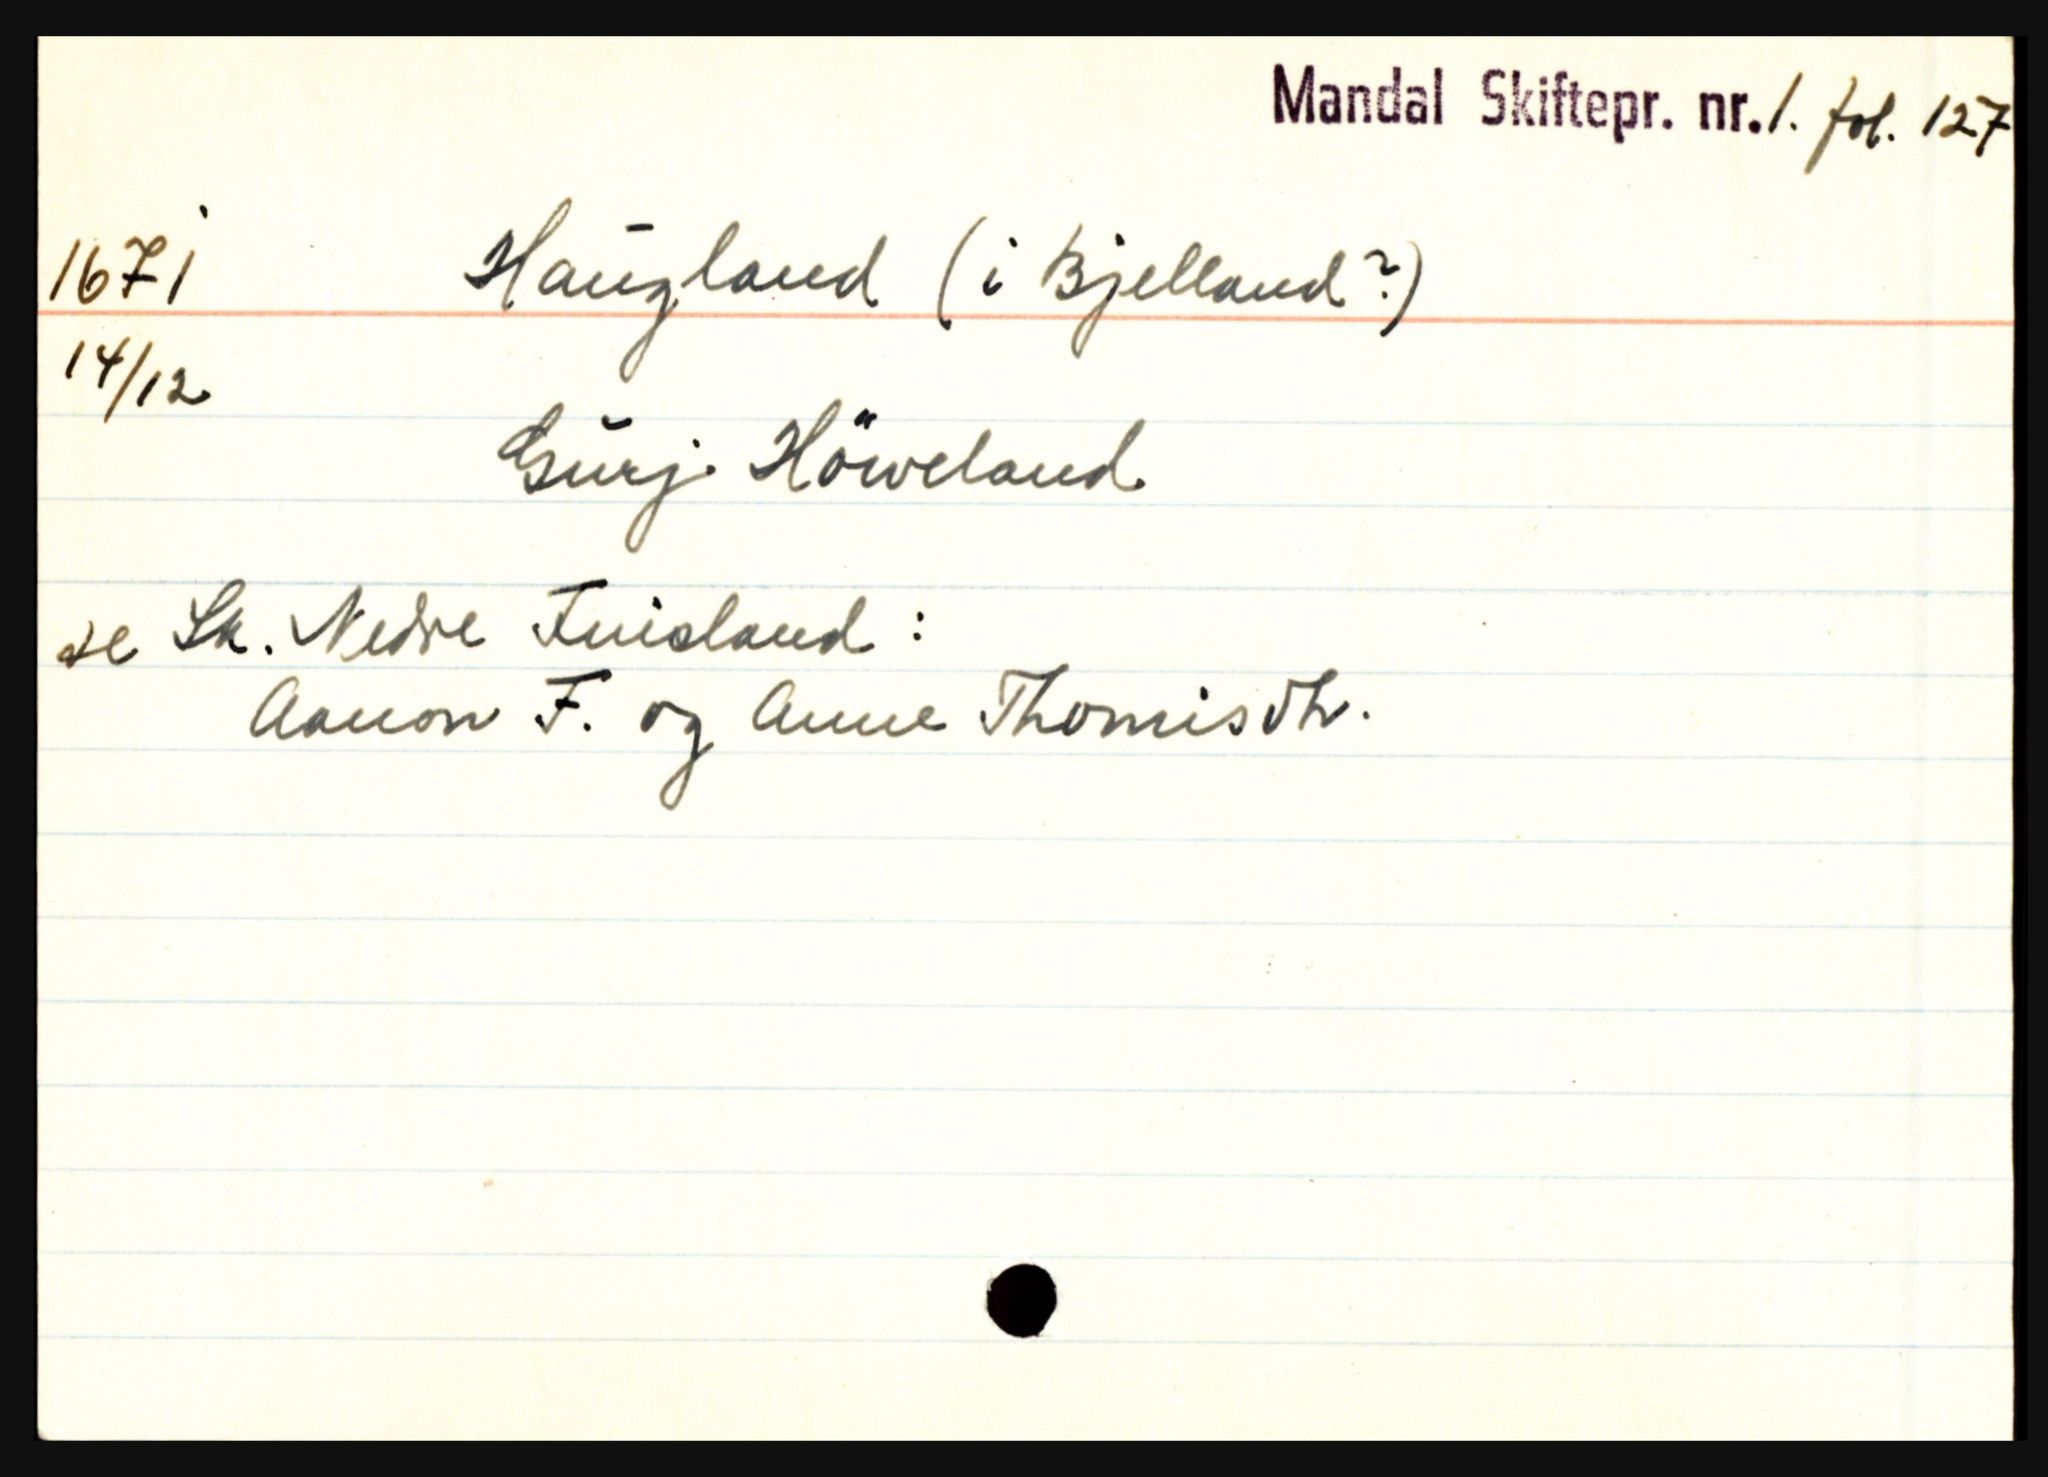 Mandal Skiftepr. nr. 1. fol. 127
1671 Haugland (i Bjelland?)
14/12
Gurj Höweland
se Sk. Nedre Finisland :
Aanon F. og Anne Thomisdtr.